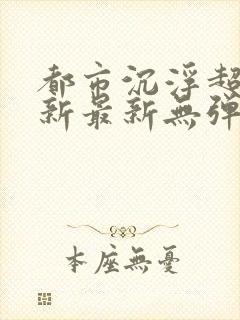 都市沉浮超
新最新無弹
本座無憂